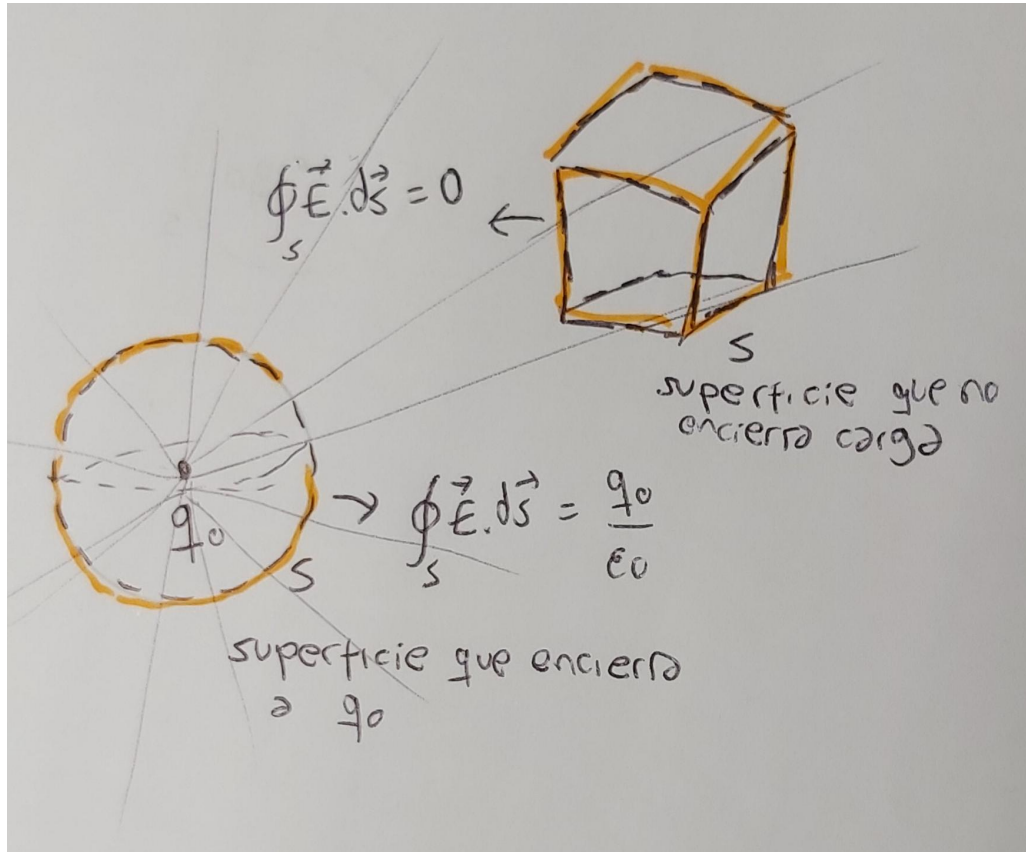 ∮_S E⃗.ds⃗ = 0
S
superficie que no
encierra carga
q₀
∮_S E⃗.ds⃗ = q₀/ε₀
S
superficie que encierra
a q₀